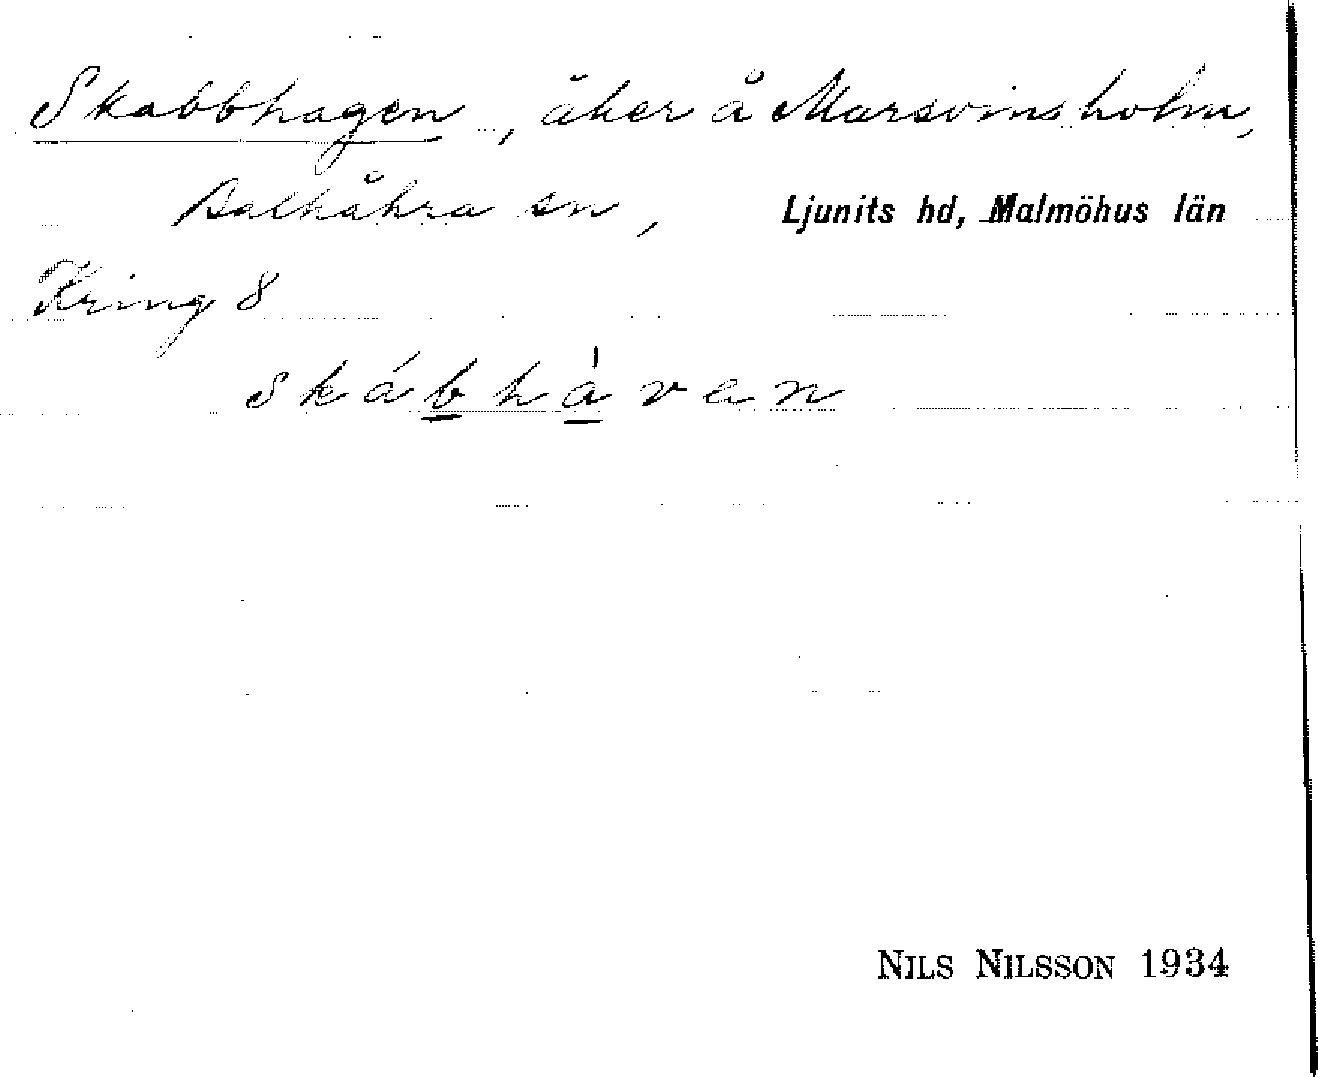 Skabbhagen, åker å Marsvinsholm,
Balkåkra sn, Ljunits hd, Malmöhus län
Kring 8
skábhàven
NILS NILSSON 1934